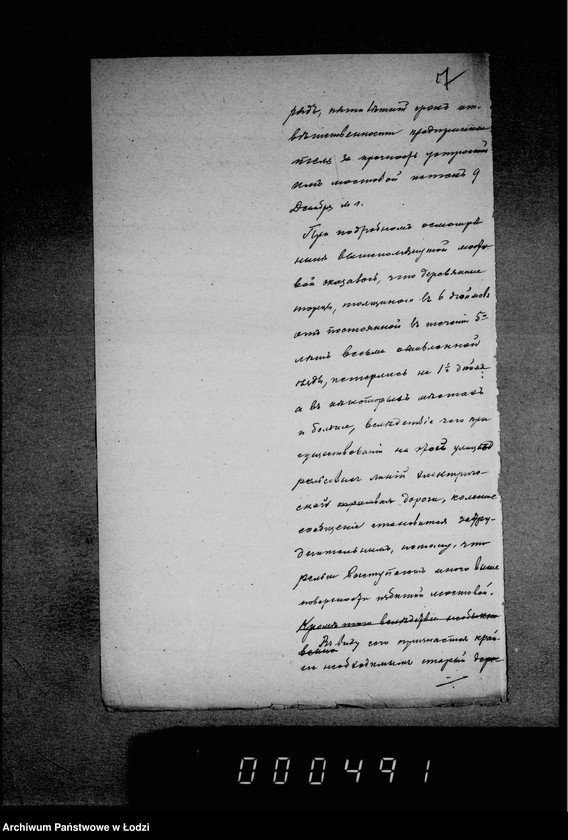 7
рядъ, пяти лѣтній срокъ от-
вѣтственности предпринима
теля за прочность устроенной
имъ мостовой истекъ 9
Декабря м. г.
При подробномъ осмотрѣ
нынѣ вышеупомянутой мосто
вой оказалось, что деревянные
торцы, толщиною въ 6 дюймовъ
отъ постоянной въ теченіи 5ти
лѣтъ весьма оживленной
ѣзды, истерлись на 1½ дюйма
а въ нѣкоторыхъ мѣстахъ
и болѣе, вслѣдствіе чего при
существованіи на улицѣ
рельсовыхъ линій электриче-
ской дороги, колесное
сообщеніе становится затру-
днительнымъ, потому, что
рельсы выступаютъ много выше
поверхности избитой мостовой.
Кромѣ того вслѣдствіе необыкно
венно
Въ виду сего признается край
не необходимымъ старый
000491
Archiwum Państwowe w Łodzi